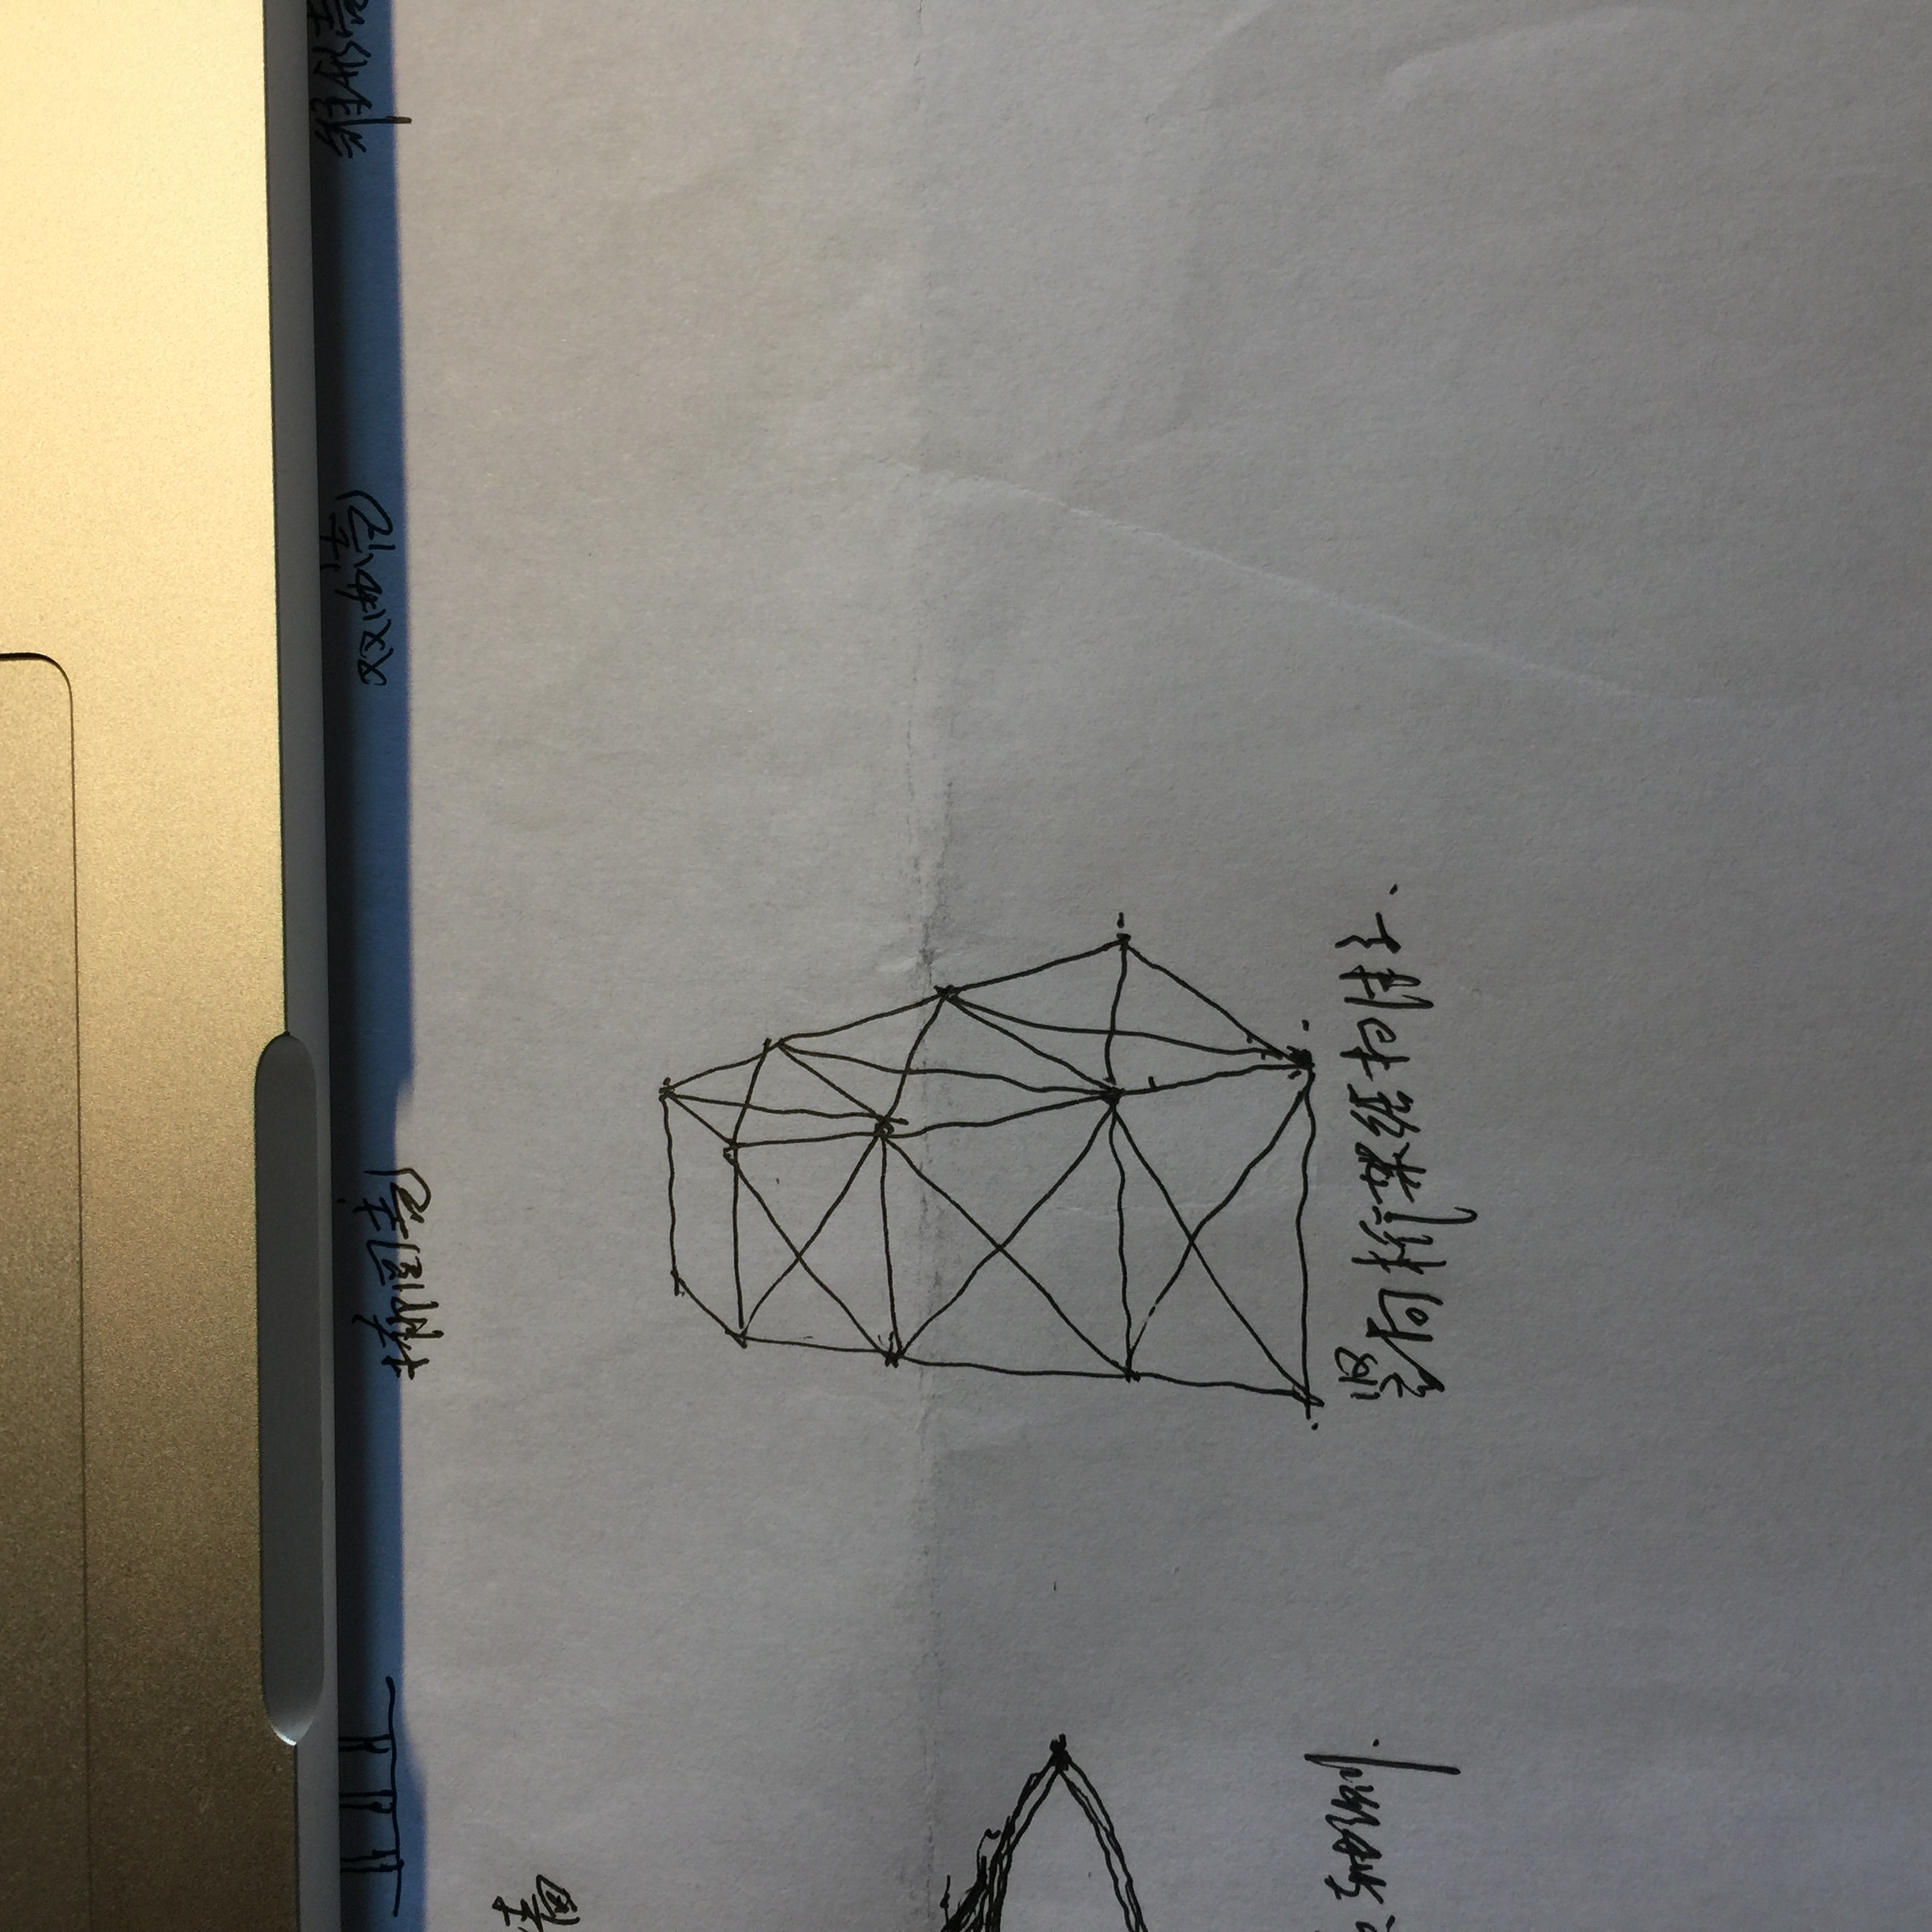 椭圆壳
双曲壳
锥形壳
墙
轴线别.
竖向桁架结构体系.